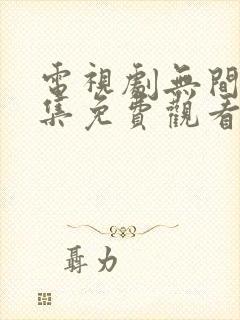 電視劇無間
集免費觀看
聶力